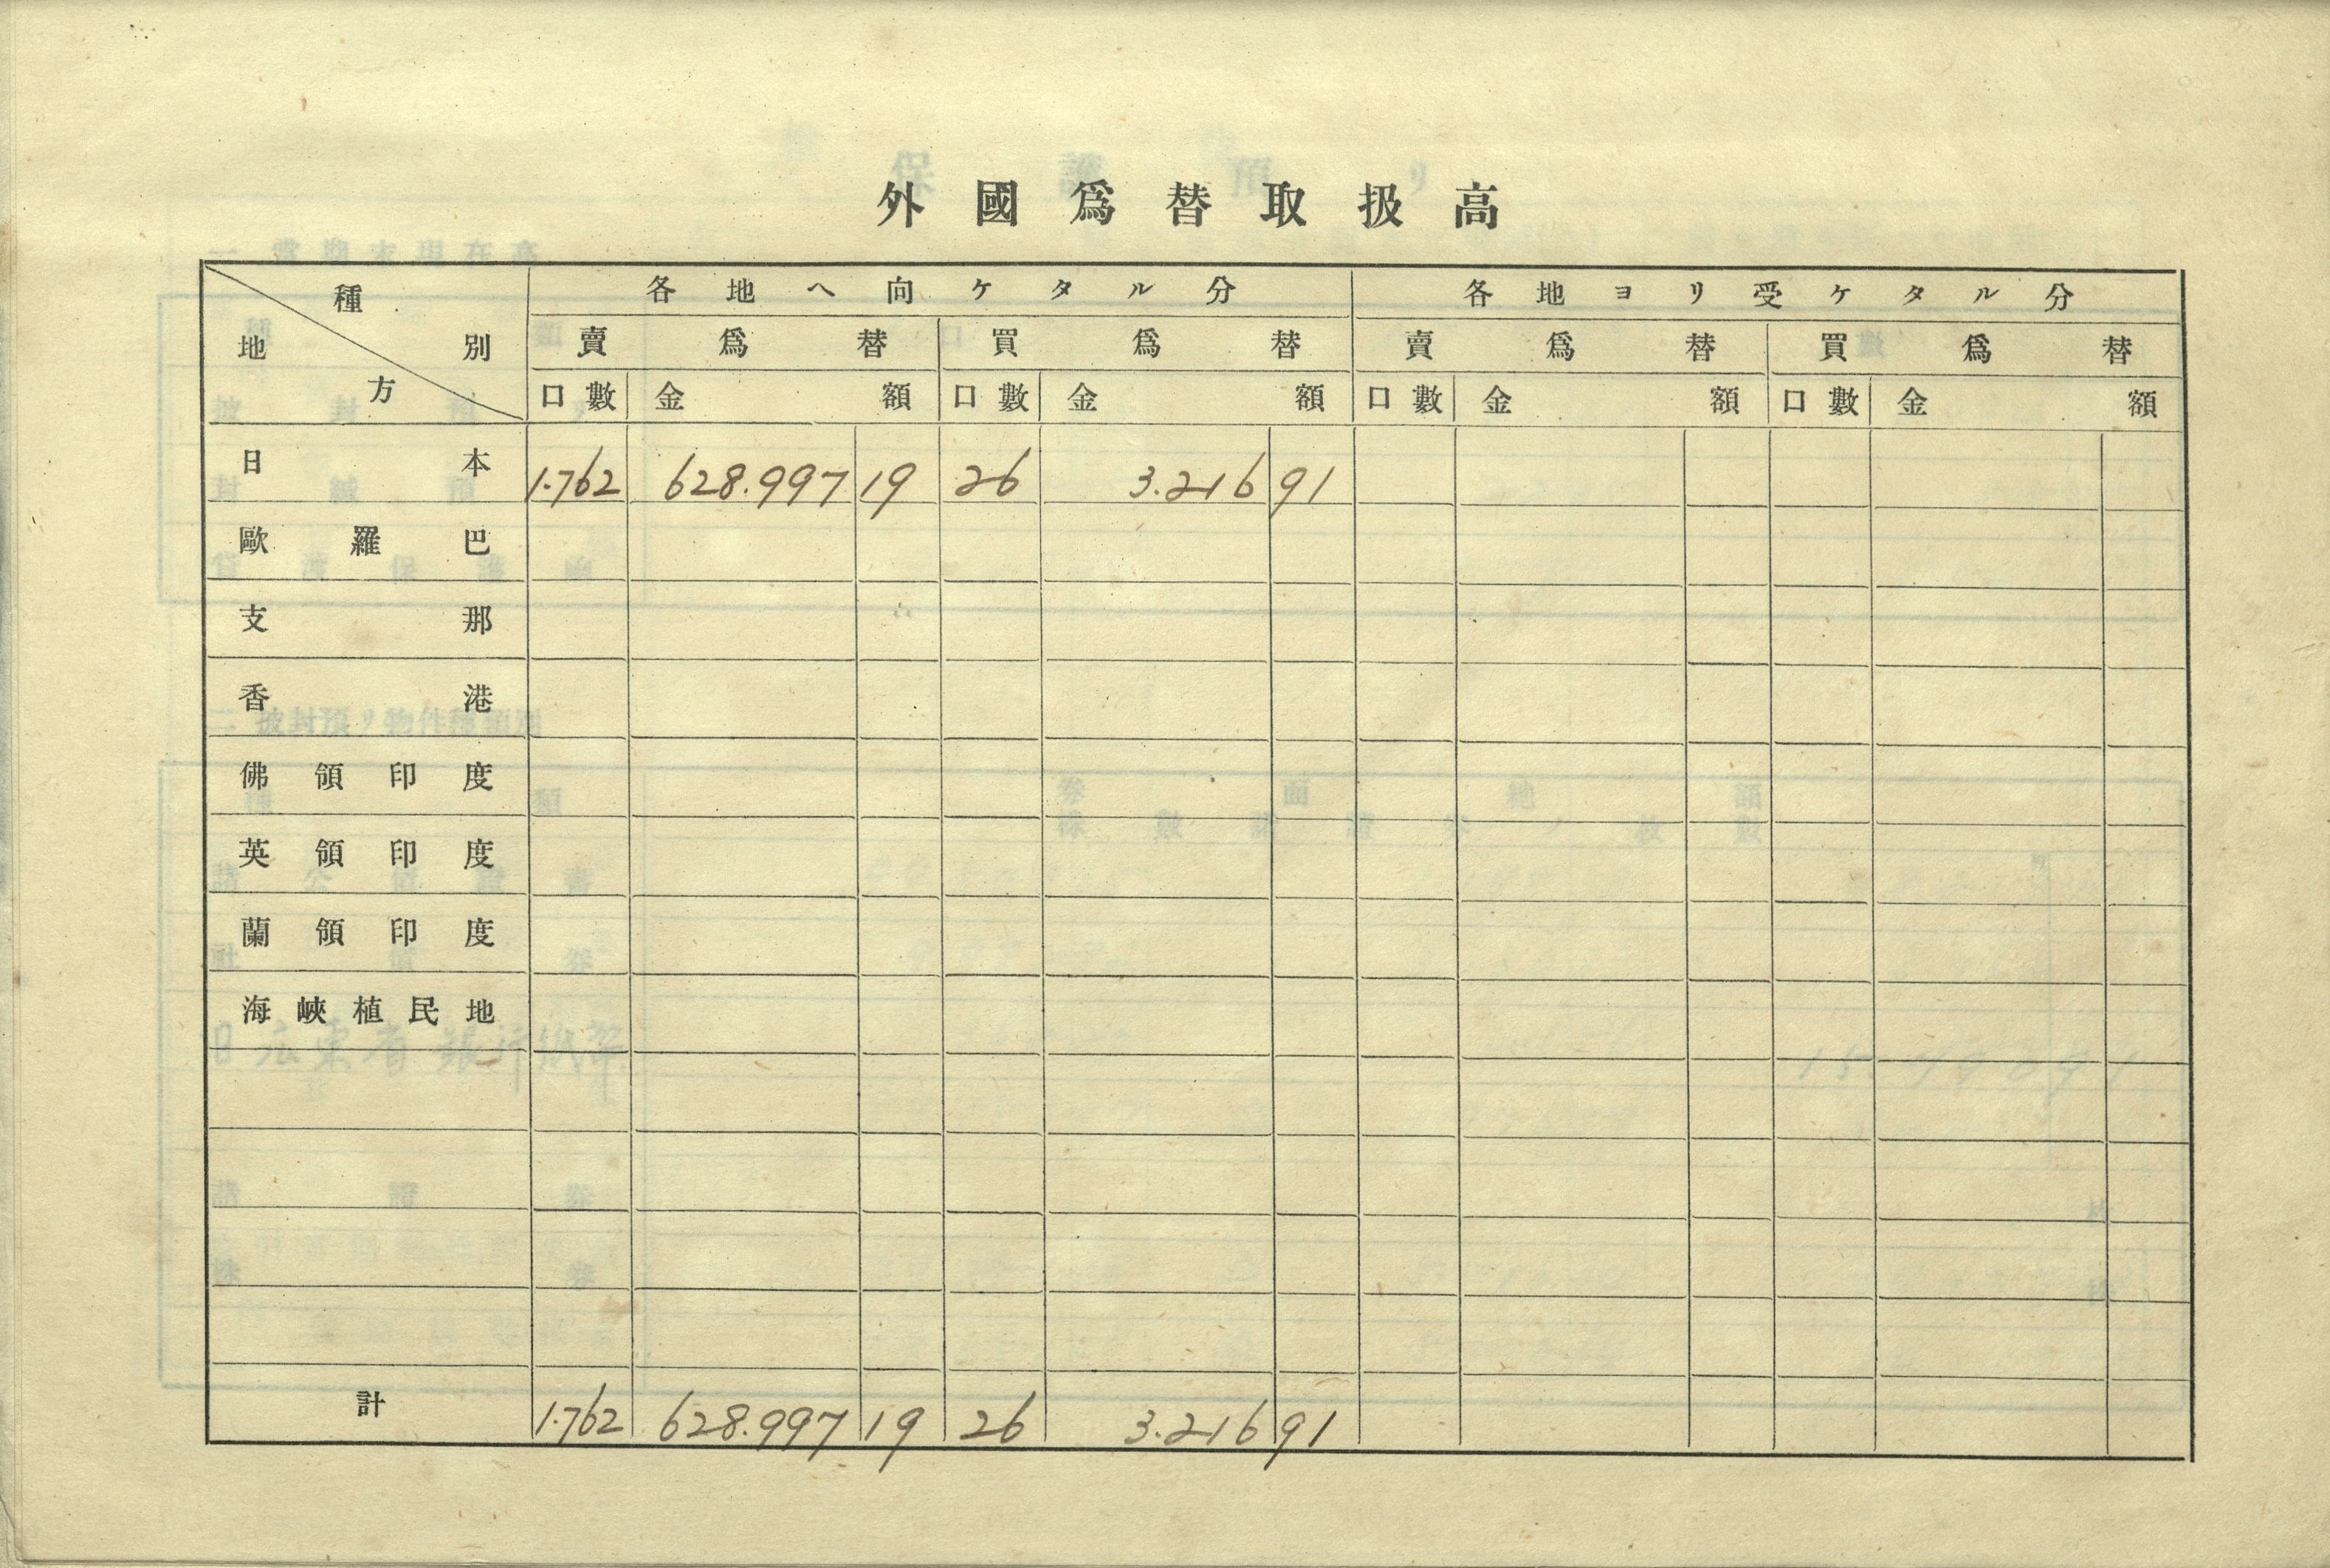 外國爲替取扱高
種別
地方
各地ヘ向ケタル分 各地ヨリ受ケタル分
賣爲替 買爲替 賣爲替 買爲替
口數 金額 口數 金額 口數 金額 口數 金額
日本 1.762 628.997 19 26 3.216 91
歐羅巴
支那
香港
佛領印度
英領印度
蘭領印度
海峽植民地
計 1.762 628.997 19 26 3.216 91